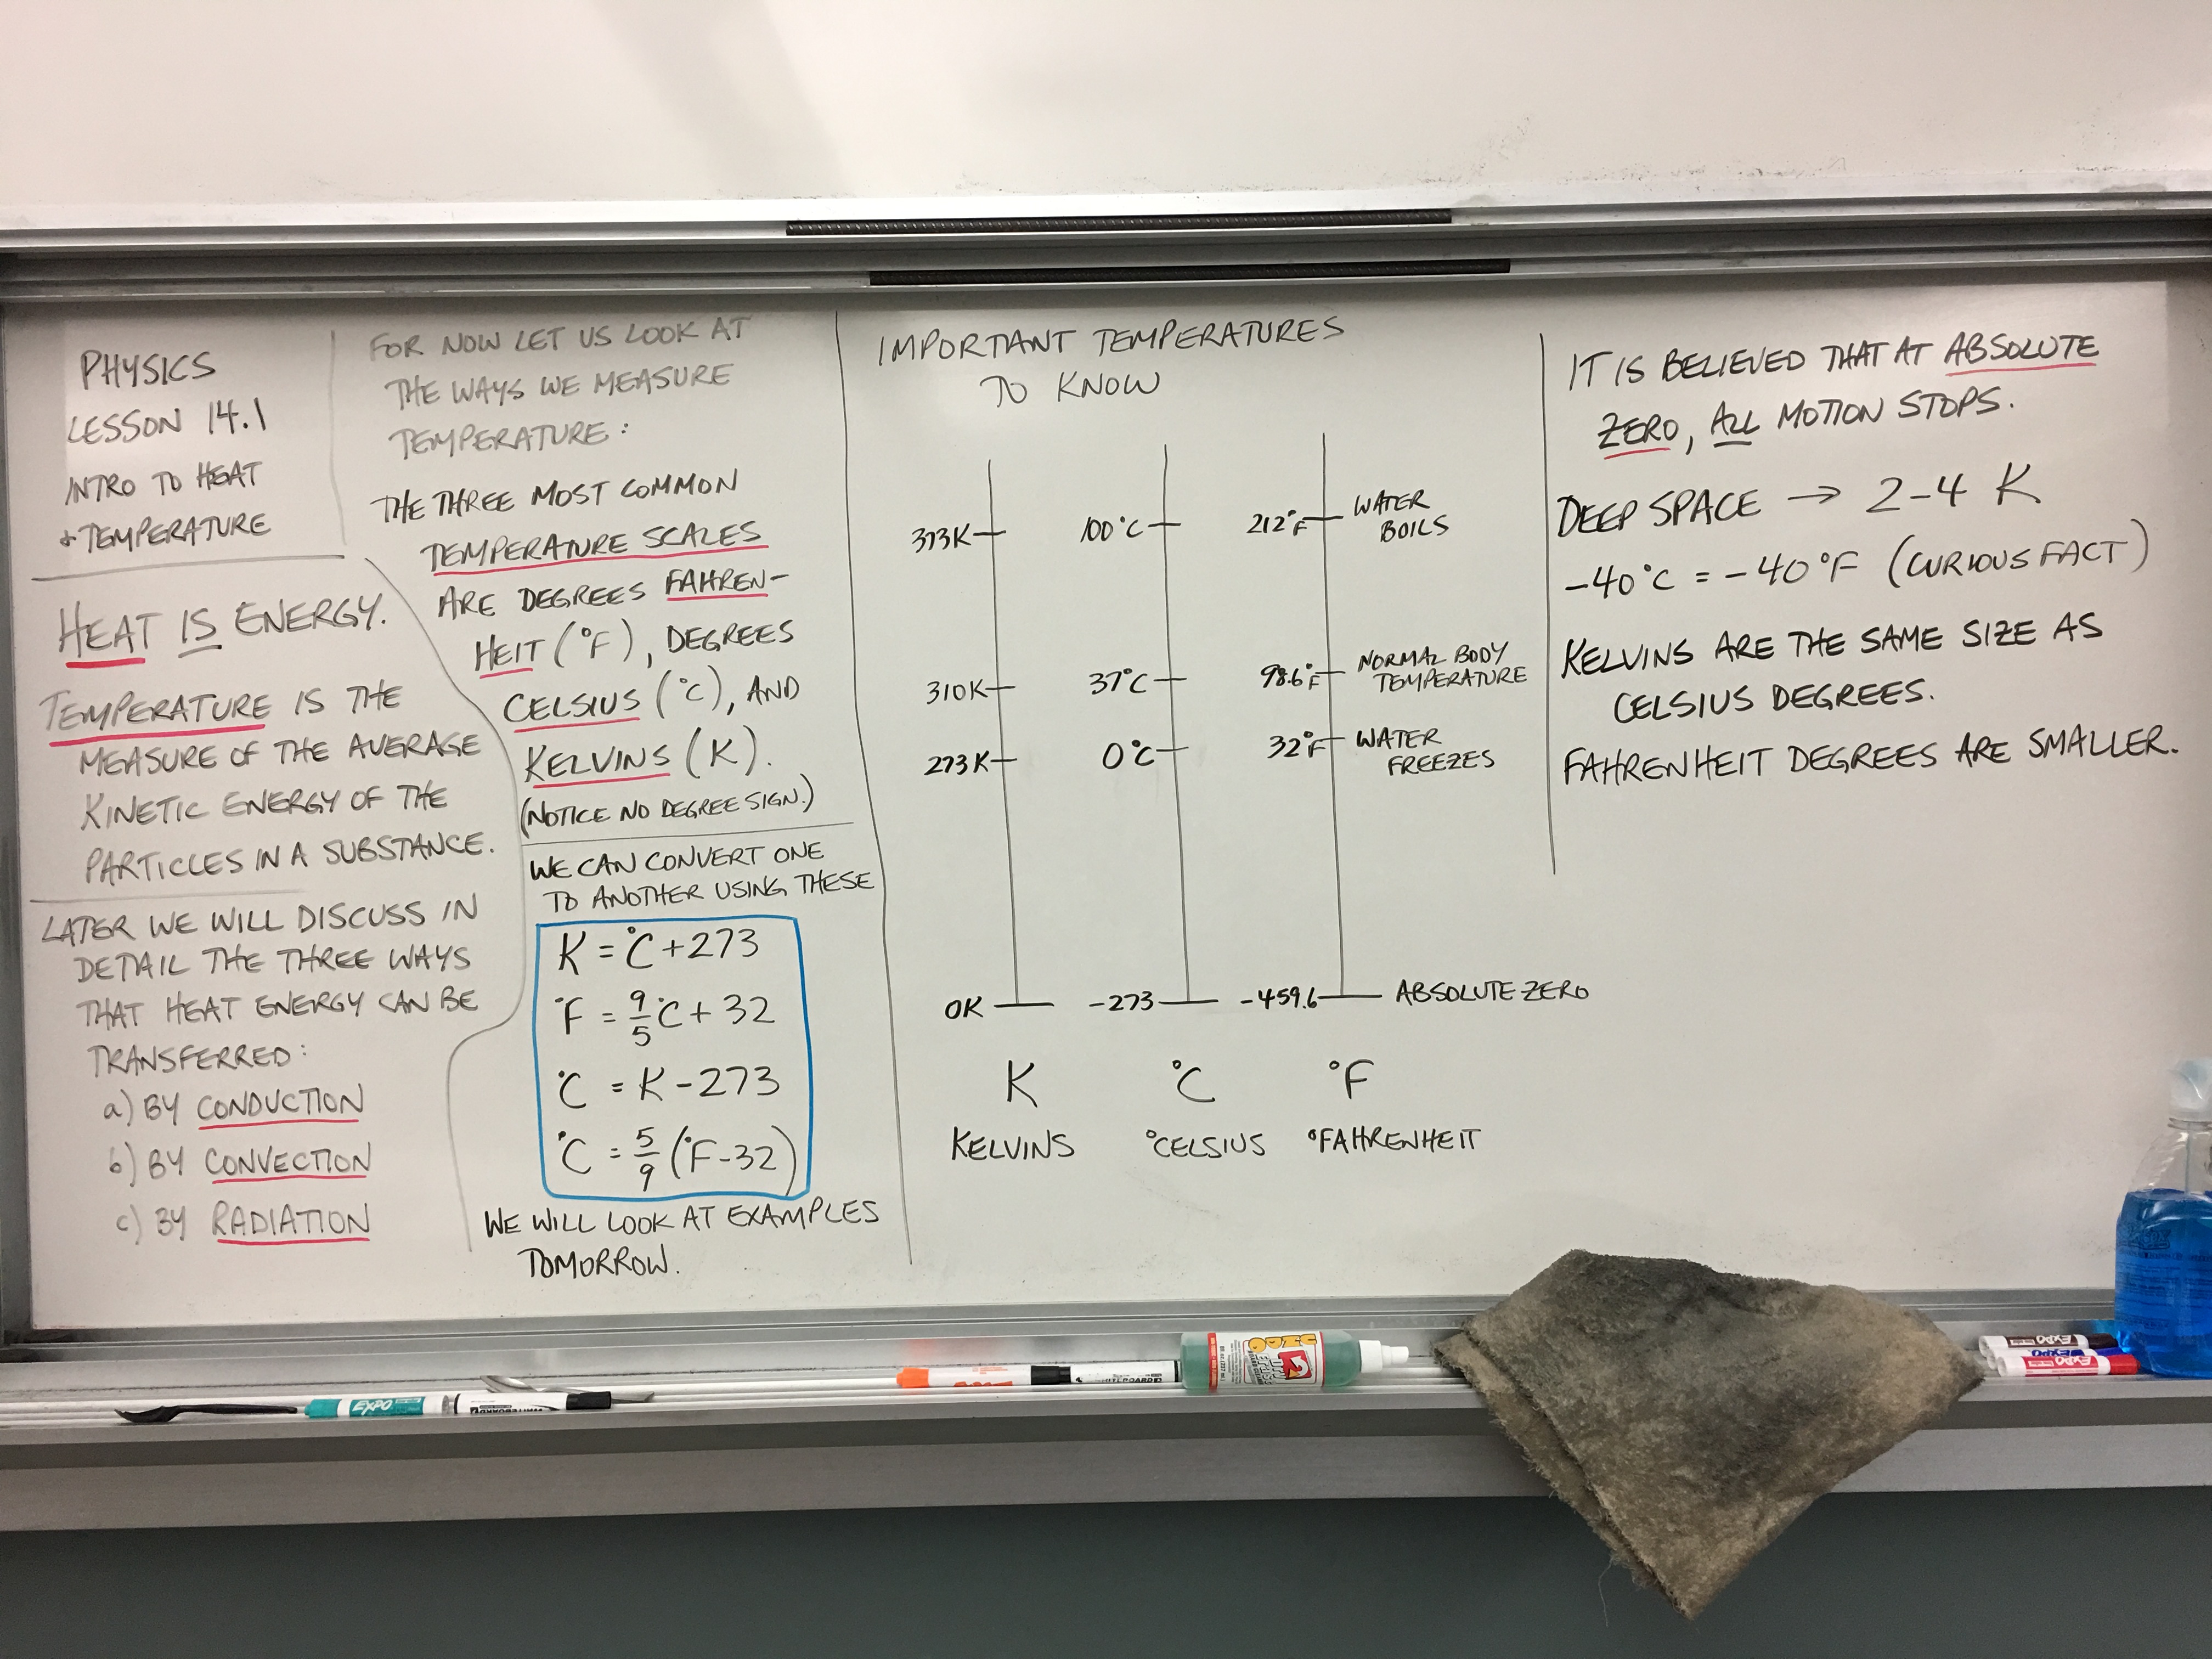 PHYSICS
LESSON 14.1
INTRO TO HEAT
+ TEMPERATURE
HEAT IS ENERGY.
TEMPERATURE IS THE
MEASURE OF THE AVERAGE
KINETIC ENERGY OF THE
PARTICLES IN A SUBSTANCE.
LATER WE WILL DISCUSS IN
DETAIL THE THREE WAYS
THAT HEAT ENERGY CAN BE
TRANSFERRED:
a) BY CONDUCTION
b) BY CONVECTION
c) BY RADIATION
FOR NOW LET US LOOK AT
THE WAYS WE MEASURE
TEMPERATURE:
THE THREE MOST COMMON
TEMPERATURE SCALES
ARE DEGREES FAHREN-
HEIT (°F), DEGREES
CELSIUS (°C), AND
KELVINS (K).
(NOTICE NO DEGREE SIGN.)
WE CAN CONVERT ONE
TO ANOTHER USING THESE
K = °C + 273
°F = 9/5 °C + 32
°C = K - 273
°C = 5/9 (°F - 32)
WE WILL LOOK AT EXAMPLES
TOMORROW.
IMPORTANT TEMPERATURES
TO KNOW
373K 100°C 212°F WATER
BOILS
310K 37°C 98.6°F NORMAL BODY
TEMPERATURE
273K 0°C 32°F WATER
FREEZES
0K -273 -459.6 ABSOLUTE ZERO
K °C °F
KELVINS °CELSIUS °FAHRENHEIT
IT IS BELIEVED THAT AT ABSOLUTE
ZERO, ALL MOTION STOPS.
DEEP SPACE → 2-4 K
-40°C = -40°F (CURIOUS FACT)
KELVINS ARE THE SAME SIZE AS
CELSIUS DEGREES.
FAHRENHEIT DEGREES ARE SMALLER.
EXPO
EXPO
EXPO
EXPO